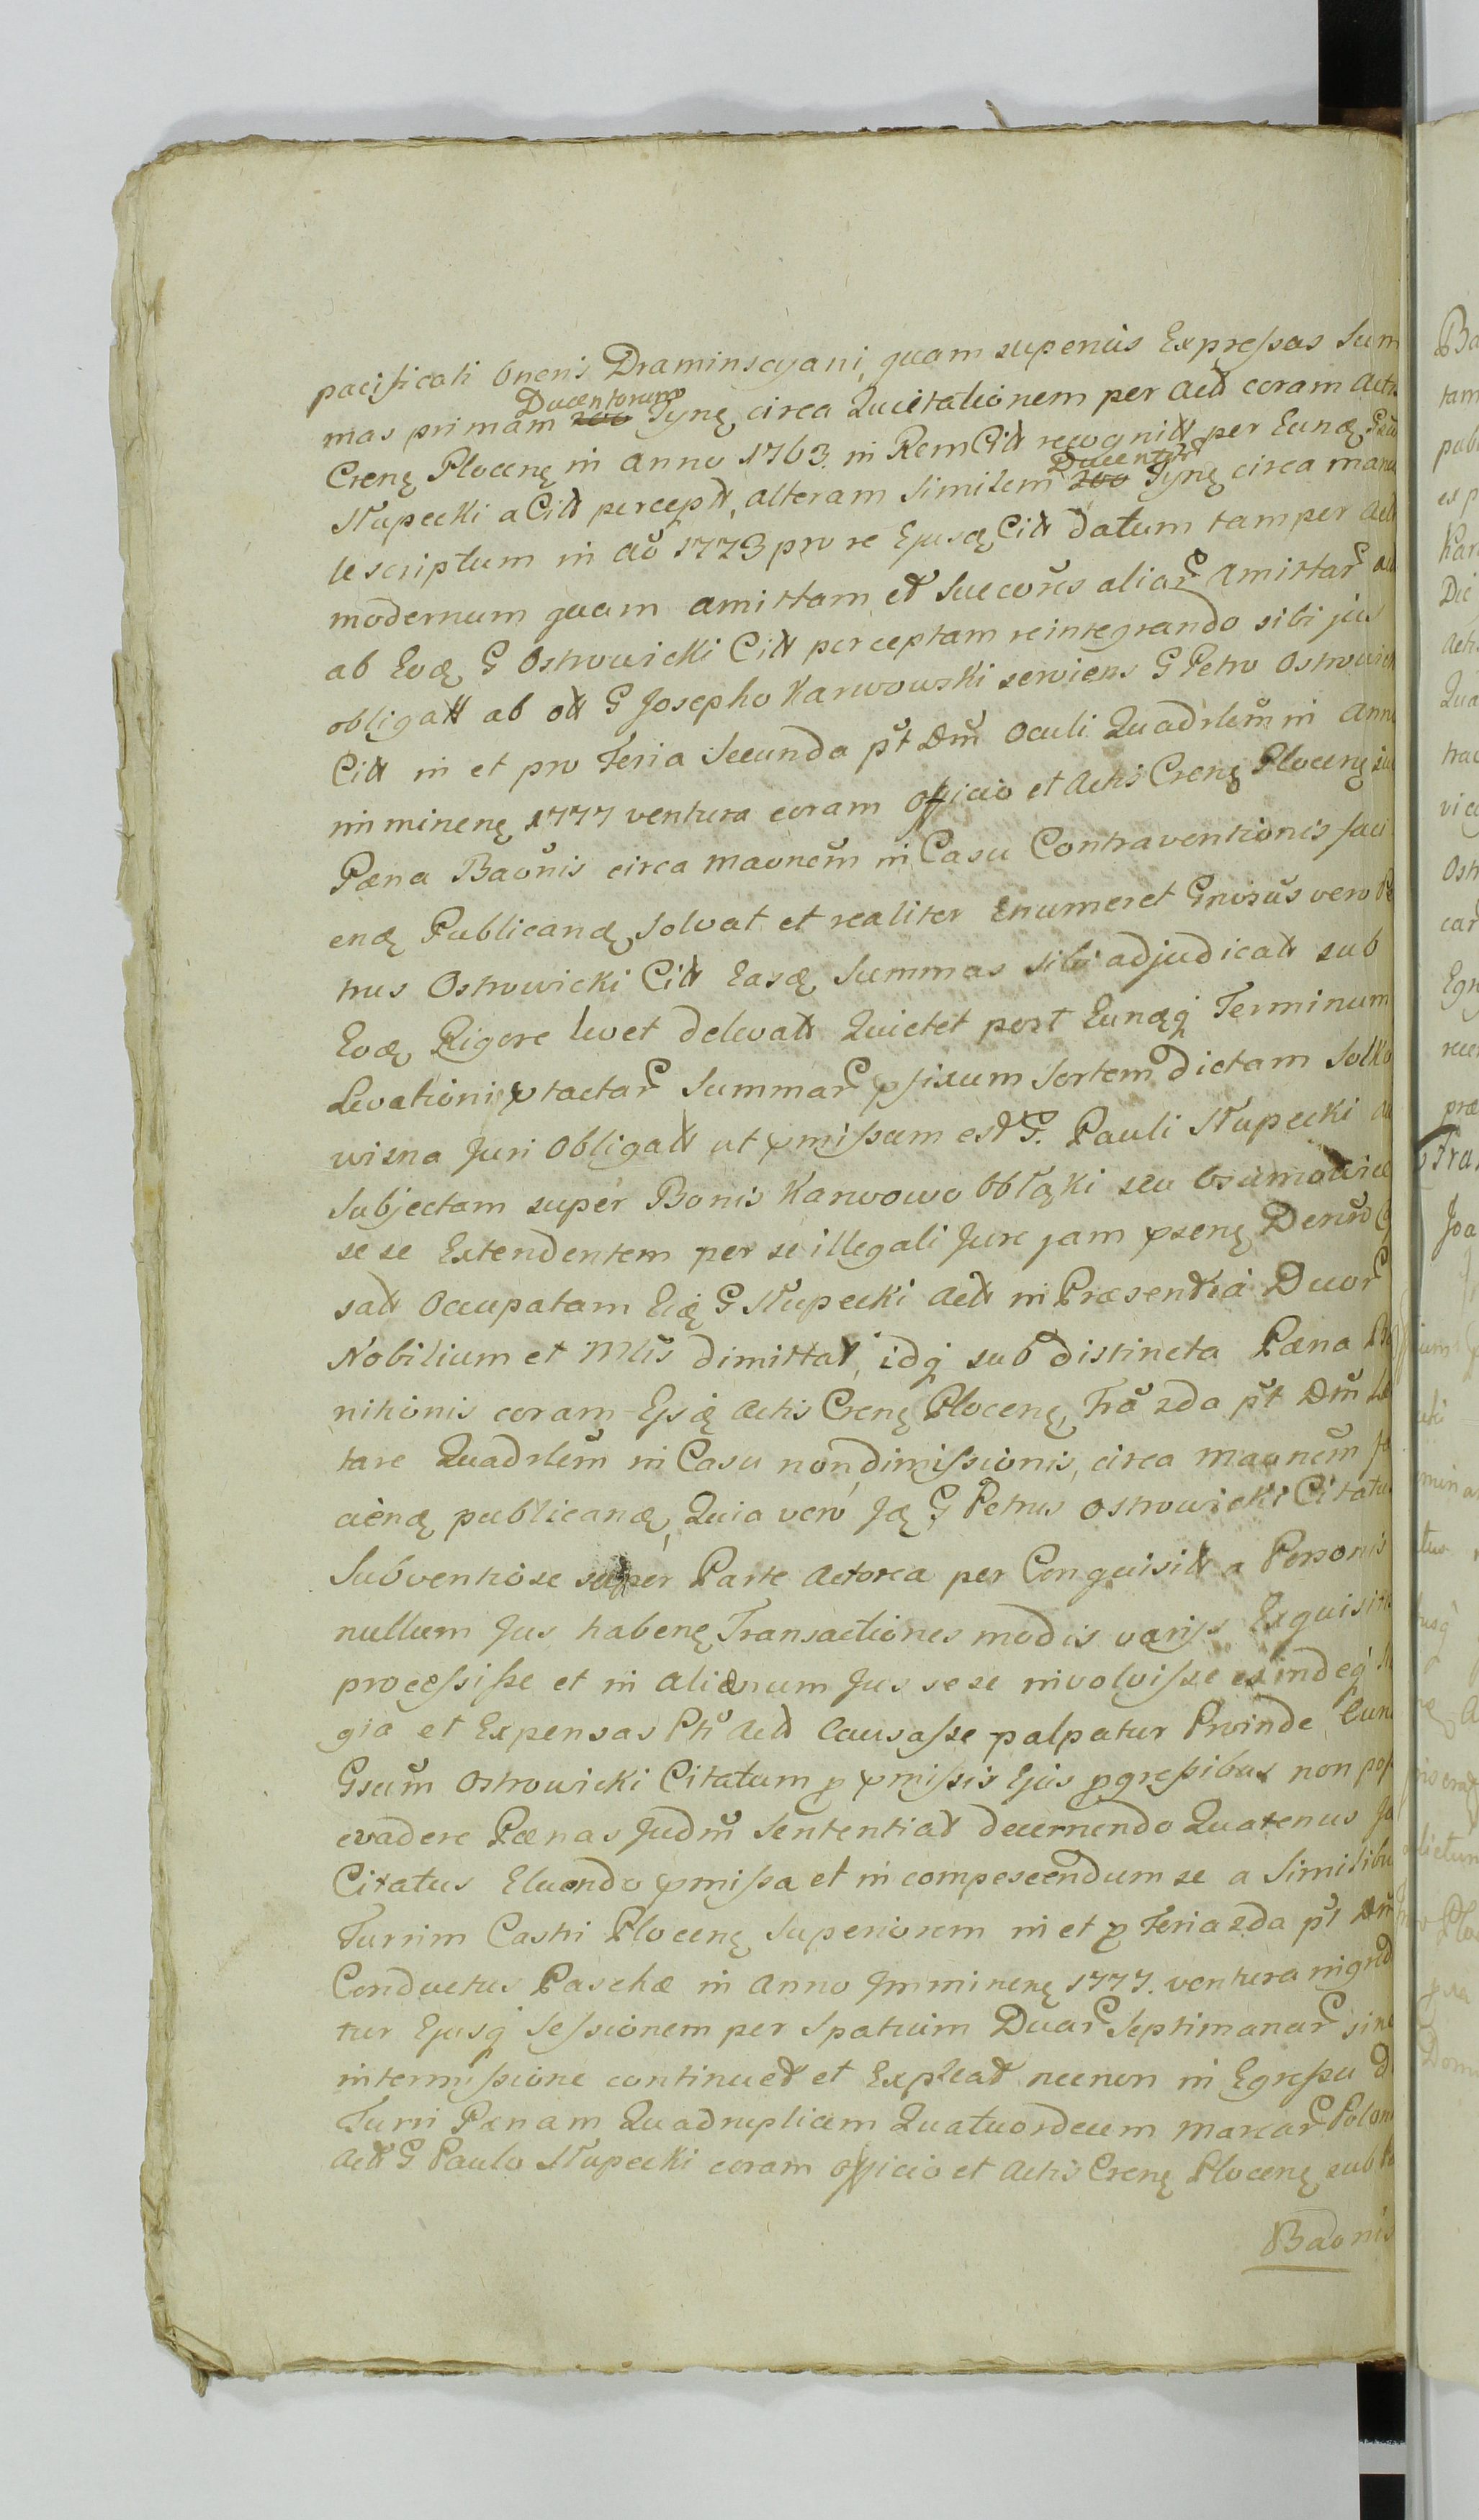 pacificati oneris Draminscyani, quam superius Expressas Sum
mas primam Ducentorum 200 Tynę circa Quietationem per Actt coram Actis
Crenę Plocenę in Anno 1763. in Rem Citt recognitt per Eundę
Słupecki a Citt perceptt, alteram Similem Ducentor 200 Tynę circa manu
lescriptum in Ao 1773 pro re Ejusdę Citt datum tam per Actt
modernum quam amittam et Succores aliar Amittar
ab Eodę G Ostrowicki Citt perceptam reintegrando sibi jus
obligatt ab ott G Josepho Karwowski serviens G Petro Ostrowick
Citt in et pro Feria Secunda pt Dm Oculi Quadrlem in Anno
imminenę 1777 ventura coram Officio et Actis Crenę Plocenę
Pæna Baonis circa maonem in Casu Contraventionis faci
endę Publicandę Solvat et realiter Enumeret Gnrosus vero Pe
trus Ostrowicki Citt Easdę Summas sibi adjudicatt sub
Eodę Rigore levet delevatt Quietet post Eundęq Terminum
Levationi ptactar Summar pfixum Sortem dictam Solko
wizna Juri Obligatt ut pmissum est G. Pauli Słupecki
Subjectam super Bonis Karwowo Obłąki seu Osumowice
se se Extendentem per se illegali Jure jam psenę
satt Occupatam Eidę G Słupecki Actt in Præsentia Duor
Nobilium et Mtis dimittat, idq sub distincta Pæna Ba
nitionis coram Ejsdę Actis Crenę Plocenę, Fra 2da pt Dm Læ
tare Quadrlem in Casu nondimissionis, circa maonem fa
ciendę publicandę, Quia vero Idę G Petrus Ostrowicki Citatus
Subventiose super Parte Actorea per Conquisitt a Personis
nullum Jus habenę Transactiones modis varijs Exquisitis
processisse et in alienum Jus sese involvisse exindeq
gia et Expensas Pti Actt Causasse palpatur Proinde Eun
Gsum Ostrowicki Citatum p pmissis Ejus pgressibus non pos
evadere Pænas Judm Sententiat decernendo Quatenus
Citatus Eluendo pmissa et in compescendum se a Similibus
Turrim Castri Plocenę Superiorem in et p Feria 2da pt Dm
Conductus Paschæ in Anno Imminenę 1777. ventura ingred
tur Ejusq Sessionem per Spatium Duar Septimanar sine
intermissione continuet et Expleat necnon in Egressu d
Turri Pænam Quadruplicem Quatuordecem marcar Polon
Actt G Paulo Słupecki coram officio et Actis Crenę Plocenę sub
Baonis